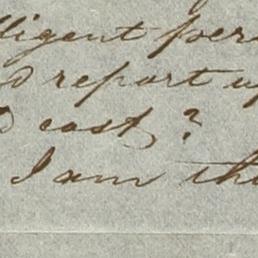 lligent per
report u
cost?
I am the